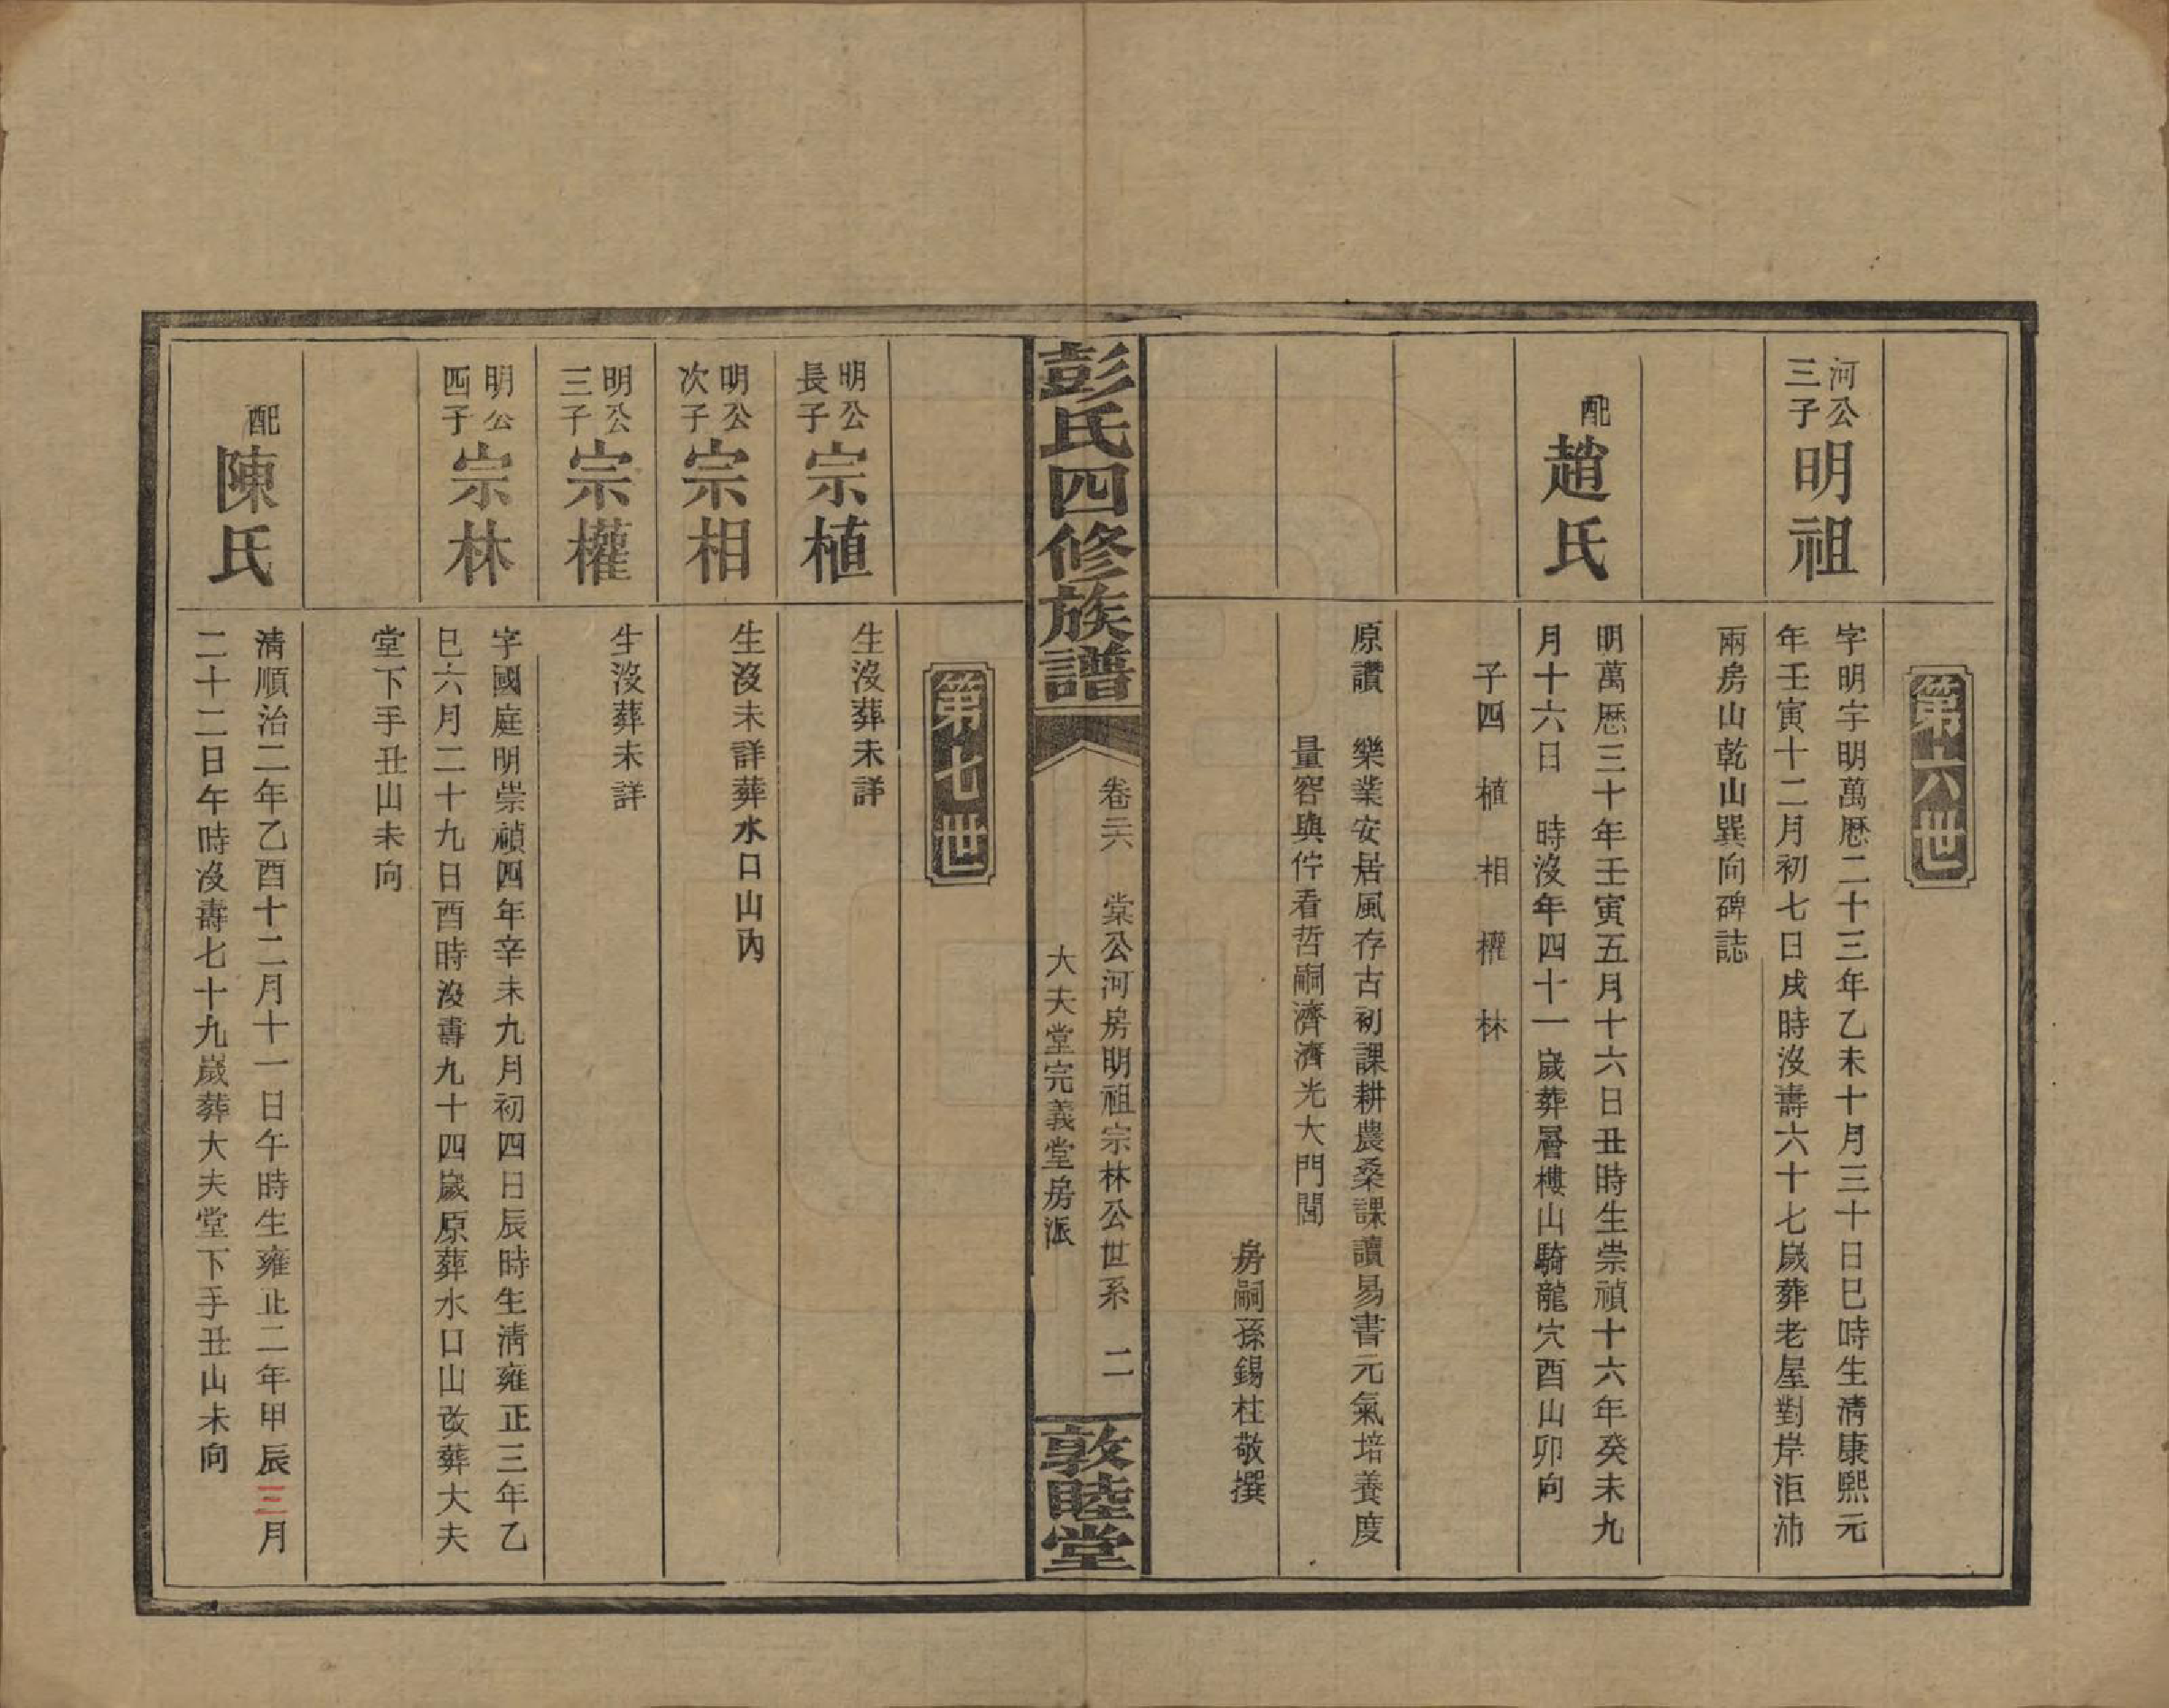 第六世
河公
三子
明祖
字明宇明萬厯二十三年乙未十月三十日巳時生清康熙元
年壬寅十二月初七日戌時沒壽六十七歲葬老屋對岸洰沛
兩房山乾山巽向碑誌
配
趙氏
明萬厯三十年壬寅五月十六日丑時生崇禎十六年癸未九
月十六日 時沒年四十一歲葬層樓山騎龍穴酉山卯向
子四 植 相 權 林
原讚 樂業安居風存古初課耕農桑課讀易書元氣培養度
量窖與佇看哲嗣濟濟光大門閭
房嗣孫錫柱敬撰
彭氏四修族譜
卷三六 棠公河房明祖宗林公世系 二
大夫堂完義堂房派
敦睦堂
第七世
明公
長子
宗植
生沒葬未詳
明公
次子
宗相
生沒未詳葬水口山內
明公
三子
宗權
生沒葬未詳
明公
四子
宗林
字國庭明崇禎四年辛未九月初四日辰時生清雍正三年乙
巳六月二十九日酉時沒壽九十四歲原葬水口山改葬大夫
堂下手丑山未向
配
陳氏
清順治二年乙酉十二月十一日午時生雍正二年甲辰三月
二十二日午時沒壽七十九歲葬大夫堂下手丑山未向